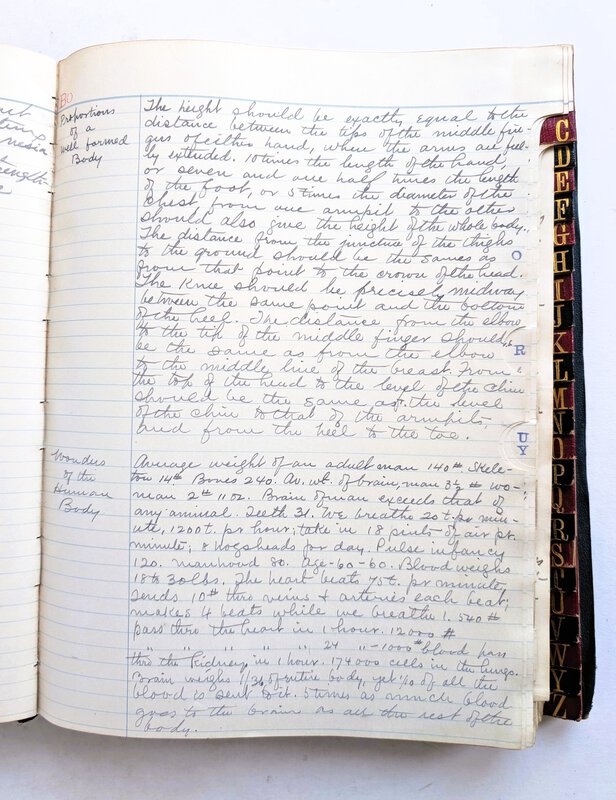 BO
Proportions
of a
well formed
Body
The height should be exactly equal to the
distance between the tips of the middle fin-
gers of either hand, when the arms are ful-
ly extended. 10 times the length of the hand,
or seven and one half times the length
of the foot, or 5 times the diameter of the
chest from one armpit to the other
should also give the height of the whole body.
The distance from the juncture of the thighs
to the ground should be the same as
from that point to the crown of the head.
The Knee should be precisely midway
between the same point and the bottom
of the heel. The distance from the elbow
to the tip of the middle finger should
be the same as from the elbow
to the middle line of the breast. From
the top of the head to the level of the chin
should be the same as the level
of the chin to that of the armpits,
and from the heel to the toe.
Wonders
of the
Human
Body
Average weight of an adult man 140# Skele-
ton 14# Bones 240. Av. wt. of brain, man 3½ # wo-
man 2# 11 oz. Brain of man exceeds that of
any animal. Teeth 32. We breathe 20 t. pr min-
ute, 1200 t. pr hour, take in 18 pints of air pr.
minute, 8 hogsheads for day. Pulse infancy
120. manhood 80. age-60-60. Blood weighs
18 to 30 lbs. The heart beats 75 t. pr minute,
sends 10# thro veins & arteries each beat;
makes 4 beats while we breathe 1. 540#
pass thro the heart in 1 hour. 12000#
" " " " " 24 " - 1000# blood pass
thro the Kidney in 1 hour. 174000 cells in the lungs.
Brain weighs 1/36 of entire body, yet 1/10 of all the
blood is sent to it. 5 times as much blood
goes to the brain as all the rest of the
body.
O
R
UY
C
D
E
F
G
H
I
J
K
L
M
N
O
P
Q
R
S
T
U
V
W
Y
Z